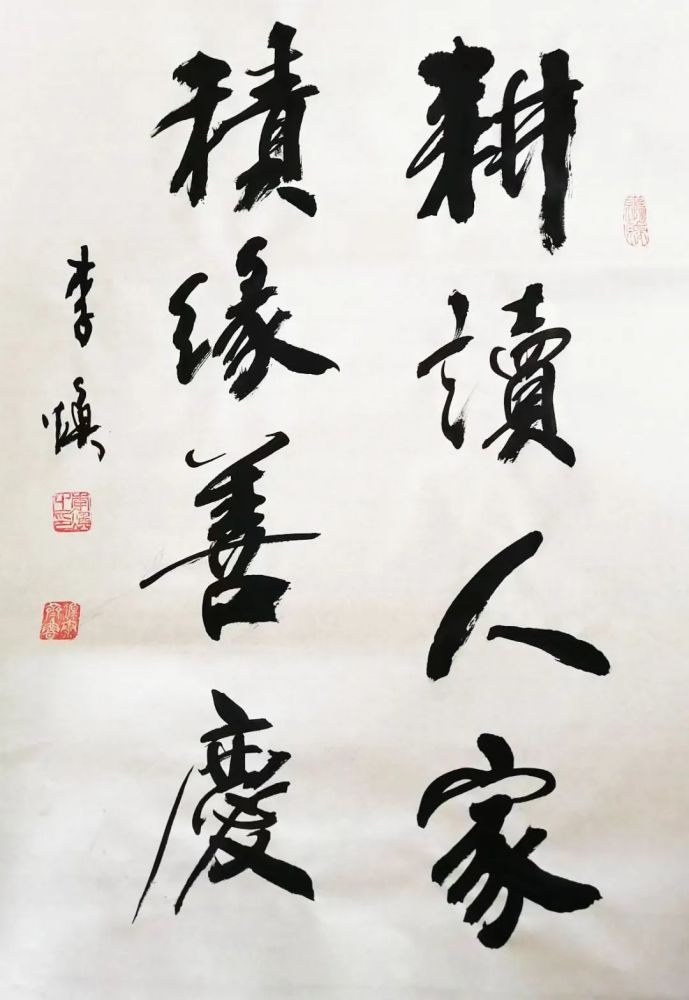 耕讀人家
積缘善慶
李慎